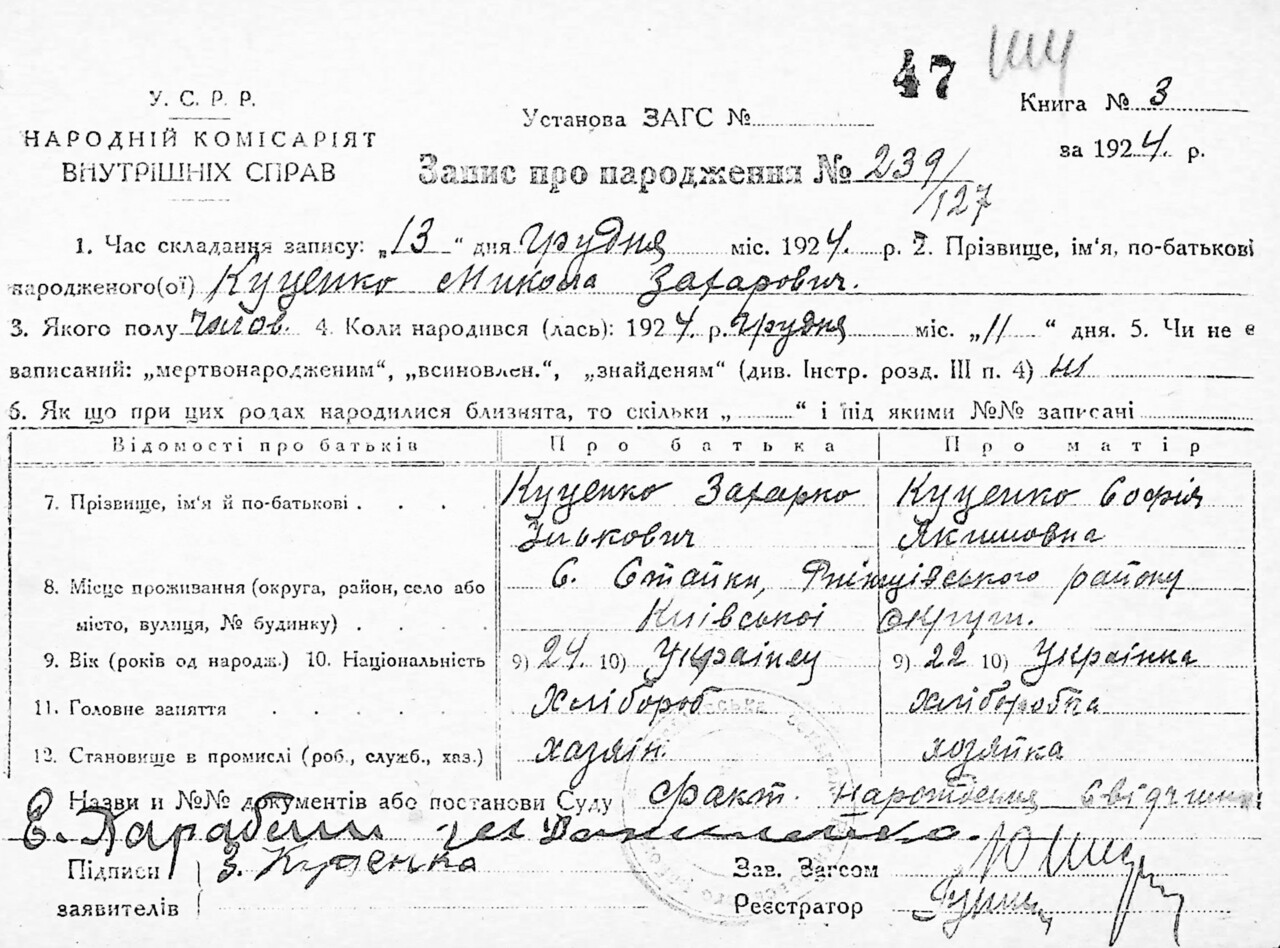 47
У. С. Р. Р.
НАРОДНІЙ КОМІСАРІЯТ
ВНУТРІШНІХ СПРАВ
Установа ЗАГС №
Книга № 3
за 1924. р.
Запис про народження № 239/127
1. Час складання запису: „13“ дня грудня міс. 1924. р. 2. Прізвище, ім'я, по-батькові
народженого(ої) Куценко Микола Захарович.
3. Якого полу чолов. 4. Коли народився (лась): 1924 р. грудня міс. „11“ дня. 5. Чи не є
записаний: „мертвонародженим“, „всиновлен.“, „знайденям“ (див. Інстр. розд. III п. 4) ні
6. Як що при цих родах народилися близнята, то скільки „ “ і під якими №№ записані
Відомості про батьків Про батька Про матір
7. Прізвище, ім'я й по-батькові . . . . Куценко Захарко Куценко Софія
Зінькович Якимовна
8. Місце проживання (округа, район, село або С. Стайки, району
місто, вулиця, № будинку) . . . . Київської Округи.
9. Вік (років од народж.) 10. Національність 9) 24. 10) Українец 9) 22 10) Українка
11. Головне заняття . . . . . . Хлібороб Хліборобка
12. Становище в промислі (роб., служб., хаз.) хозяін. хозяйка
Назви и №№ документів або постанови Суду факт. народження свідчили
Є.
Підписи З. Куценка Зав. Загсом
заявителів Реєстратор